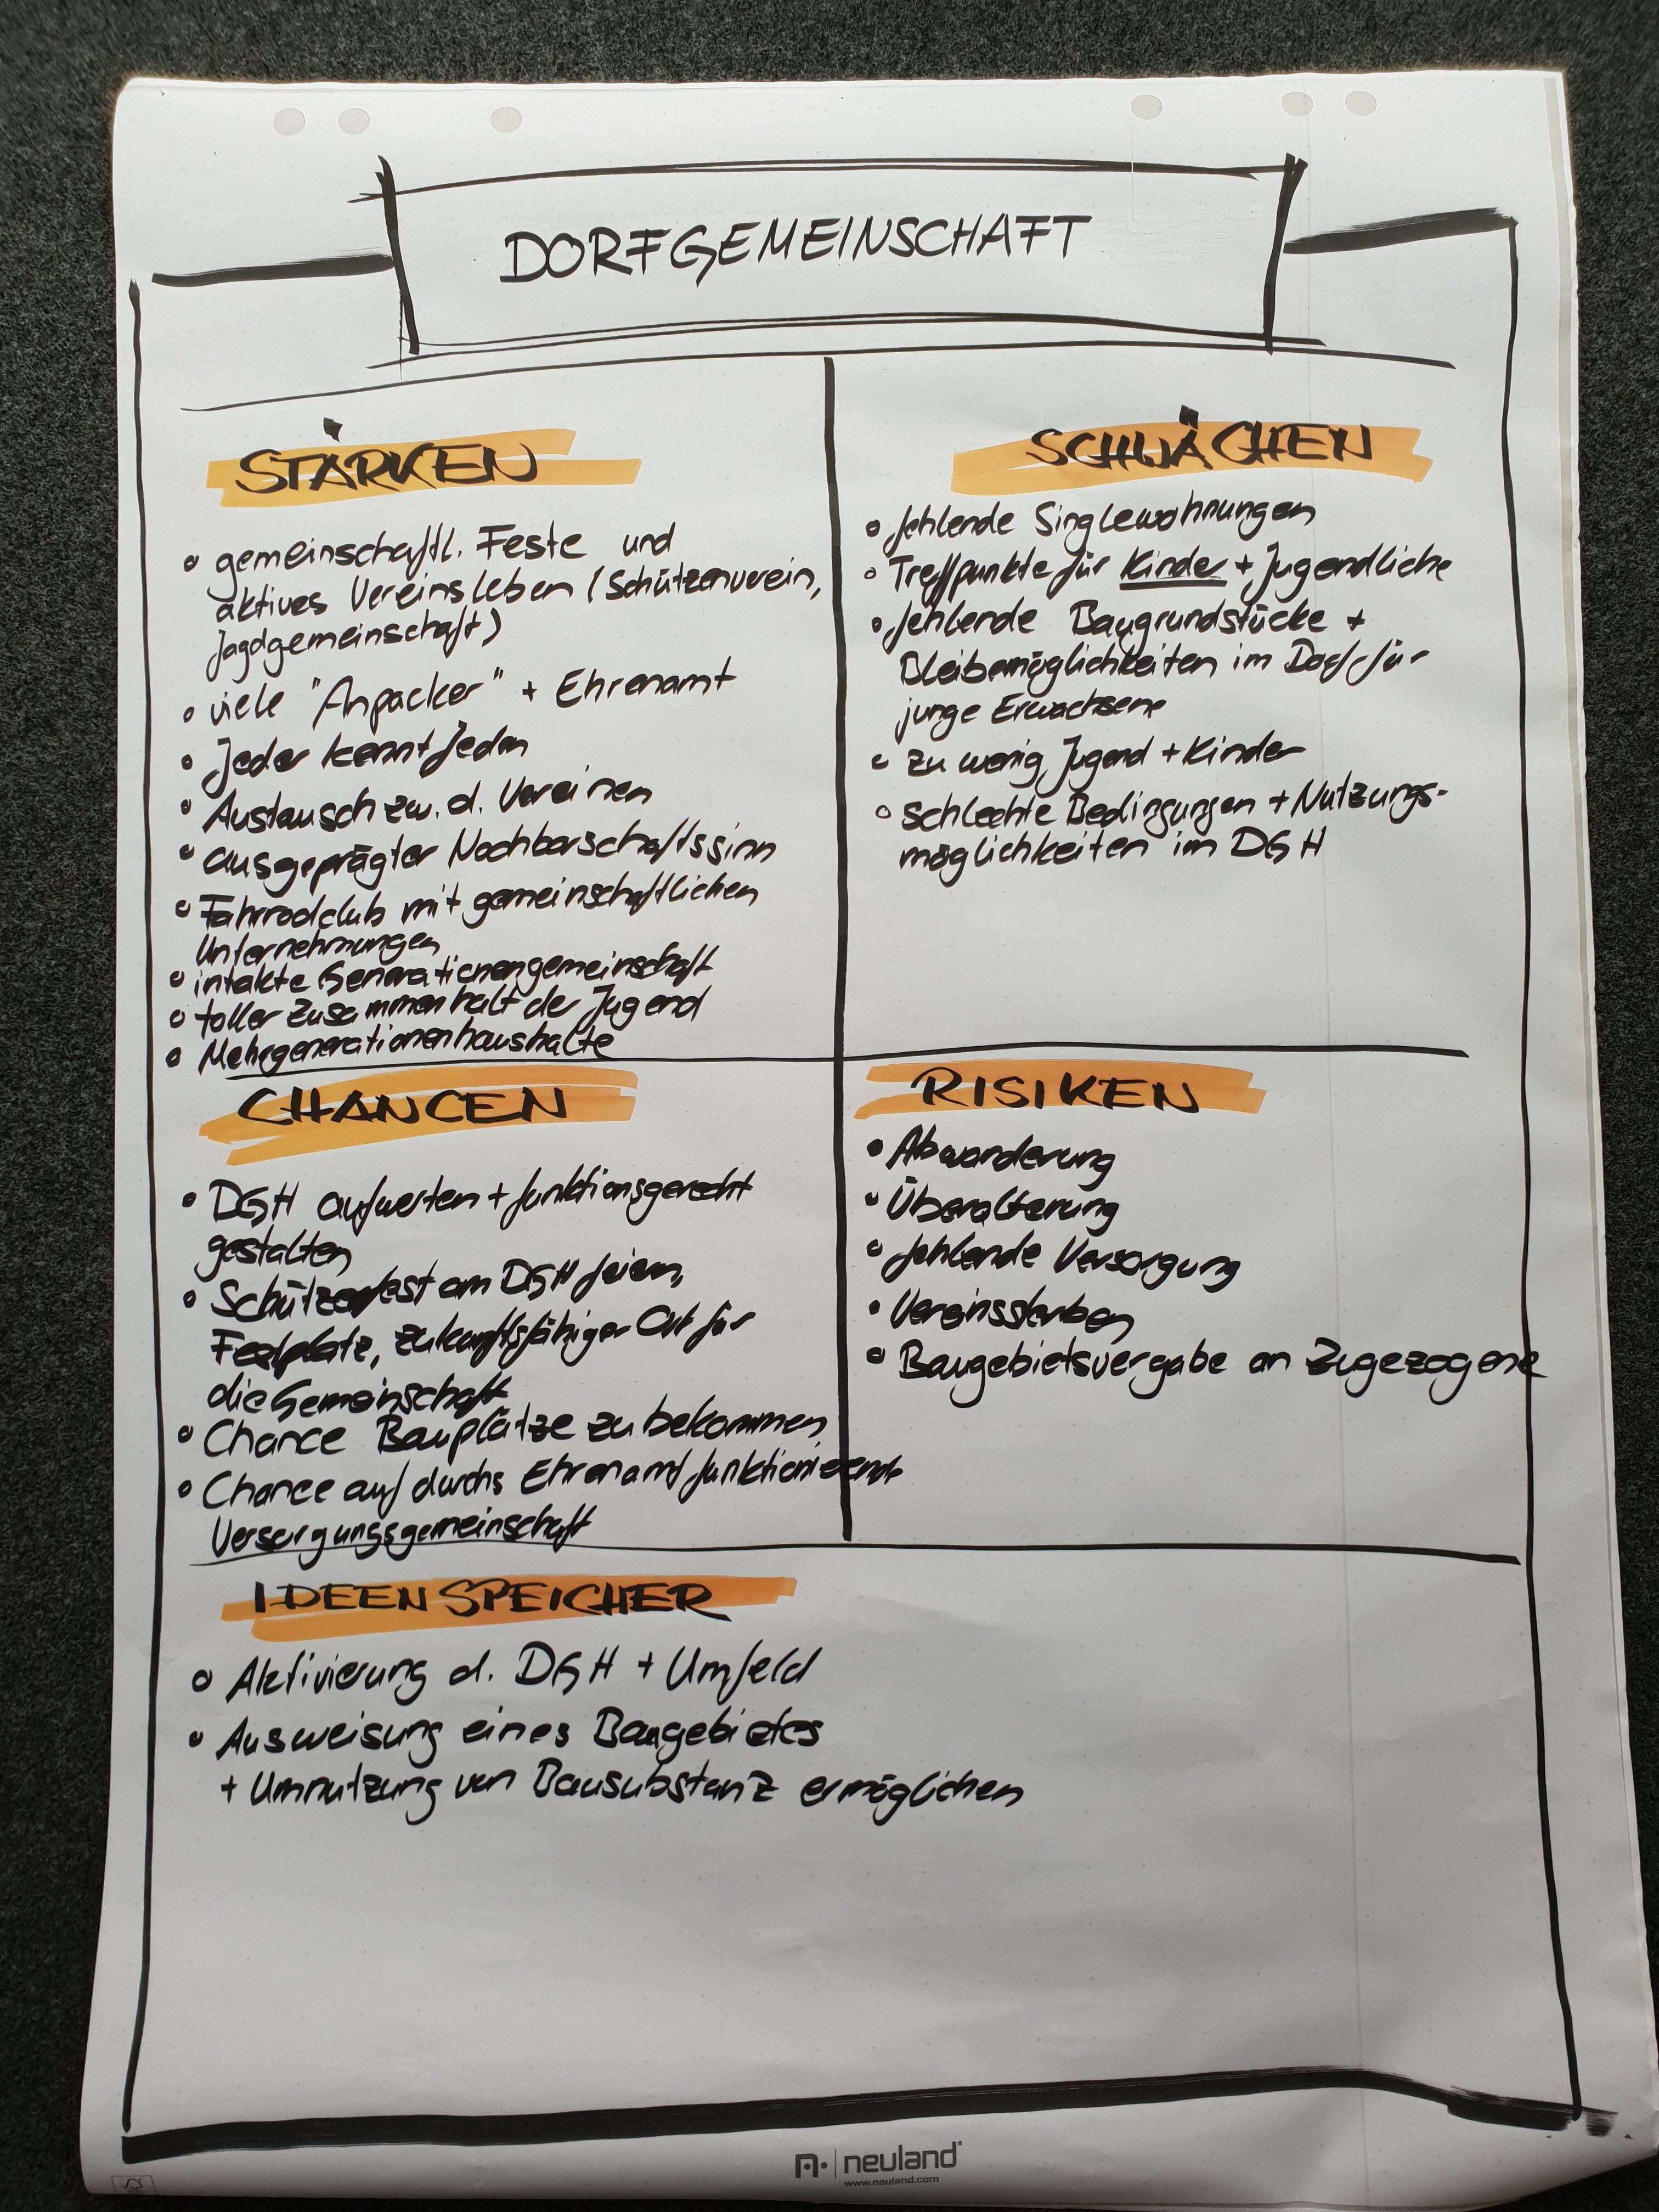 DORFGEMEINSCHAFT
STÄRKEN
• gemeinschaftl. Feste und
aktives Vereinsleben (Schützenverein,
Jagdgemeinschaft)
• viele "Anpacker" + Ehrenamt
• Jeder kennt jeden
• Austausch zw. d. Vereinen
• ausgeprägter Nachbarschaftssinn
• Fahrradclub mit gemeinschaftlichen
Unternehmungen
• intakte Generationengemeinschaft
• toller Zusammenhalt der Jugend
• Mehrgenerationenhaushalte
SCHWÄCHEN
• fehlende Singlewohnungen
• Treffpunkte für Kinder + Jugendliche
• fehlende Baugrundstücke +
Bleibemöglichkeiten im Dorf für
junge Erwachsene
• zu wenig Jugend + Kinder
• schlechte Bedingungen + Nutzungs-
möglichkeiten im DGH
CHANCEN
• DGH aufwerten + funktionsgerecht
gestalten
• Schützenfest am DGH feiern,
Festplatz, zukunftsfähiger Ort für
die Gemeinschaft
• Chance Bauplätze zu bekommen
• Chance auf durchs Ehrenamt funktionierende
Versorgungsgemeinschaft
RISIKEN
• Abwanderung
• Überalterung
• fehlende Versorgung
• Vereinssterben
• Baugebietsvergabe an Zugezogene
IDEENSPEICHER
• Aktivierung d. DGH + Umfeld
• Ausweisung eines Baugebietes
+ Umnutzung von Bausubstanz ermöglichen
neuland
www.neuland.com